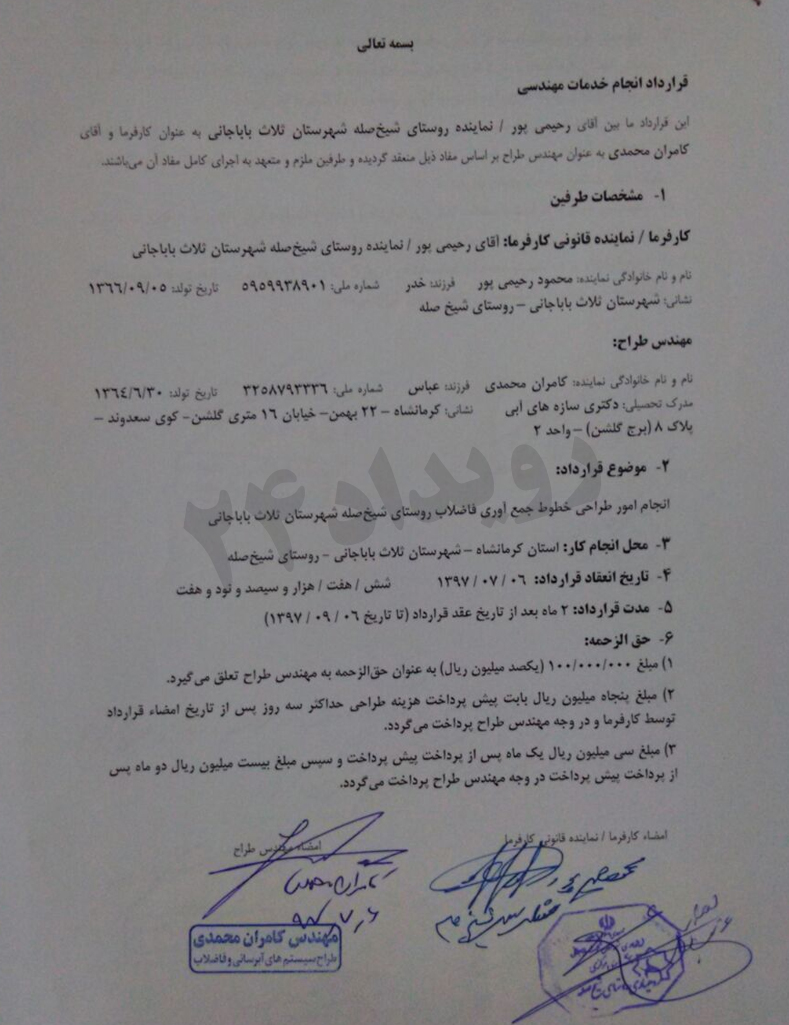 بسمه تعالی
قرارداد انجام خدمات مهندسی
این قرارداد ما بین آقای رحیمی پور / نماینده روستای شیخ‌صله شهرستان ثلاث باباجانی به عنوان کارفرما و آقای
کامران محمدی به عنوان مهندس طراح بر اساس مفاد ذیل منعقد گردیده و طرفین ملزم و متعهد به اجرای کامل مفاد آن می‌باشند.
۱- مشخصات طرفین
کارفرما / نماینده قانونی کارفرما: آقای رحیمی پور / نماینده روستای شیخ‌صله شهرستان ثلاث باباجانی
نام و نام خانوادگی نماینده: محمود رحیمی پور فرزند: خدر شماره ملی: ۵۹۵۹۹۳۸۹۰۱ تاریخ تولد: ۱۳۶۶/۰۹/۰۵
نشانی: شهرستان ثلاث باباجانی – روستای شیخ صله
مهندس طراح:
نام و نام خانوادگی نماینده: کامران محمدی فرزند: عباس شماره ملی: ۳۲۵۸۷۹۳۳۳۶ تاریخ تولد: ۱۳۶۴/۶/۳۰
مدرک تحصیلی: دکتری سازه های آبی نشانی: کرمانشاه – ۲۲ بهمن- خیابان ۱۶ متری گلشن- کوی سعدوند –
پلاک ۸ (برج گلشن) – واحد ۲
۲- موضوع قرارداد:
انجام امور طراحی خطوط جمع آوری فاضلاب روستای شیخ‌صله شهرستان ثلاث باباجانی
۳- محل انجام کار: استان کرمانشاه – شهرستان ثلاث باباجانی - روستای شیخ‌صله
۴- تاریخ انعقاد قرارداد: ۰۶ / ۰۷ / ۱۳۹۷ شش / هفت / هزار و سیصد و نود و هفت
۵- مدت قرارداد: ۲ ماه بعد از تاریخ عقد قرارداد (تا تاریخ ۰۶ / ۰۹ / ۱۳۹۷)
۶- حق الزحمه:
۱) مبلغ ۱۰۰/۰۰۰/۰۰۰ (یکصد میلیون ریال) به عنوان حق‌الزحمه به مهندس طراح تعلق می‌گیرد.
۲) مبلغ پنجاه میلیون ریال بابت پیش پرداخت هزینه طراحی حداکثر سه روز پس از تاریخ امضاء قرارداد
توسط کارفرما و در وجه مهندس طراح پرداخت می‌گردد.
۳) مبلغ سی میلیون ریال یک ماه پس از پرداخت پیش پرداخت و سپس مبلغ بیست میلیون ریال دو ماه پس
از پرداخت پیش پرداخت در وجه مهندس طراح پرداخت می‌گردد.
امضاء کارفرما / نماینده قانونی کارفرما
امضاء مهندس طراح
کامران محمدی
۹۷/۷/۶
مهندس کامران محمدی
طراح سیستم های آبرسانی و فاضلاب
رویداد۲۴